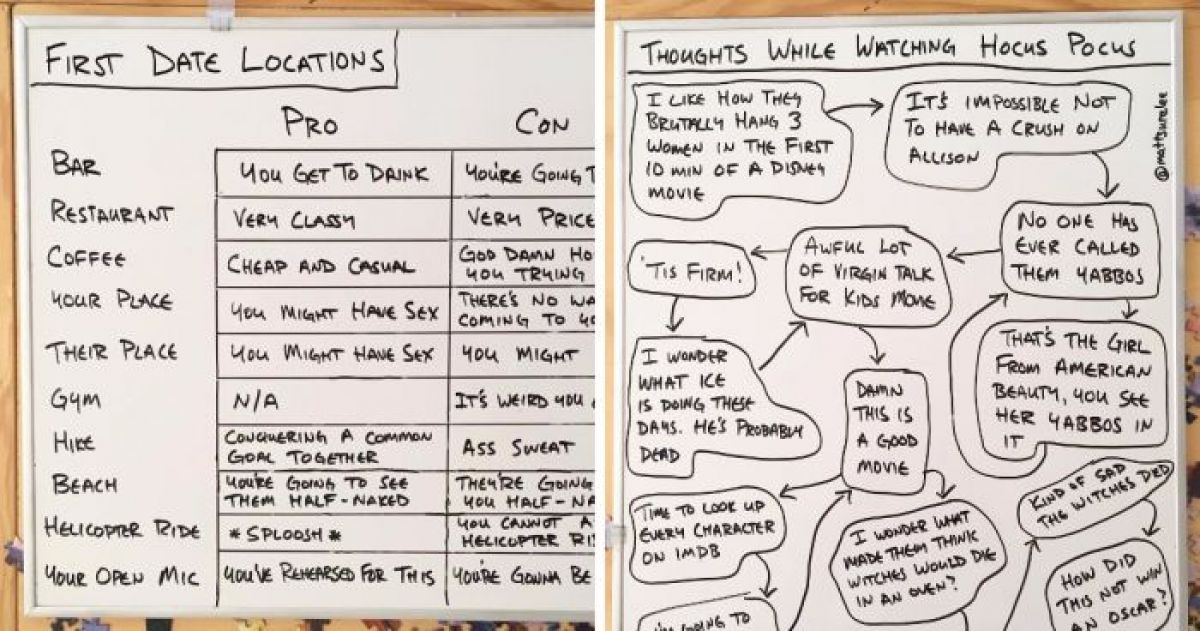 FIRST DATE LOCATIONS
PRO
CON
BAR
YOU GET TO DRINK
YOU'RE GOING T
RESTAURANT
VERY CLASSY
VERY PRICE
COFFEE
CHEAP AND CASUAL
GOD DAMN HO
YOU TRYING
YOUR PLACE
YOU MIGHT HAVE SEX
THERE'S NO WA
COMING TO YO
THEIR PLACE
YOU MIGHT HAVE SEX
YOU MIGHT
GYM
N/A
IT'S WEIRD YOU
HIKE
CONQUERING A COMMON
GOAL TOGETHER
ASS SWEAT
BEACH
YOU'RE GOING TO SEE
THEM HALF-NAKED
THEY'RE GOING
YOU HALF-NA
HELICOPTER RIDE
* SPLOOSH *
YOU CANNOT A
HELICOPTER RI
YOUR OPEN MIC
YOU'VE REHEARSED FOR THIS
YOU'RE GONNA BE
THOUGHTS WHILE WATCHING HOCUS POCUS
I LIKE HOW THEY
BRUTALLY HANG 3
WOMEN IN THE FIRST
10 MIN OF A DISNEY
MOVIE
IT'S IMPOSSIBLE NOT
TO HAVE A CRUSH ON
ALLISON
@mattsurelee
NO ONE HAS
EVER CALLED
THEM YABBOS
AWFUL LOT
OF VIRGIN TALK
FOR KIDS MOVIE
'TIS FIRM!
I WONDER
WHAT ICE
IS DOING THESE
DAYS. HE'S PROBABLY
DEAD
THAT'S THE GIRL
FROM AMERICAN
BEAUTY, YOU SEE
HER YABBOS IN
IT
DAMN
THIS IS
A GOOD
MOVIE
TIME TO LOOK UP
EVERY CHARACTER
ON IMDB
I WONDER WHAT
MADE THEM THINK
WITCHES WOULD DIE
IN AN OVEN?
KIND OF SAD
THE WITCHES DIED
HOW DID
THIS NOT WIN
AN OSCAR?
I'M GOING TO